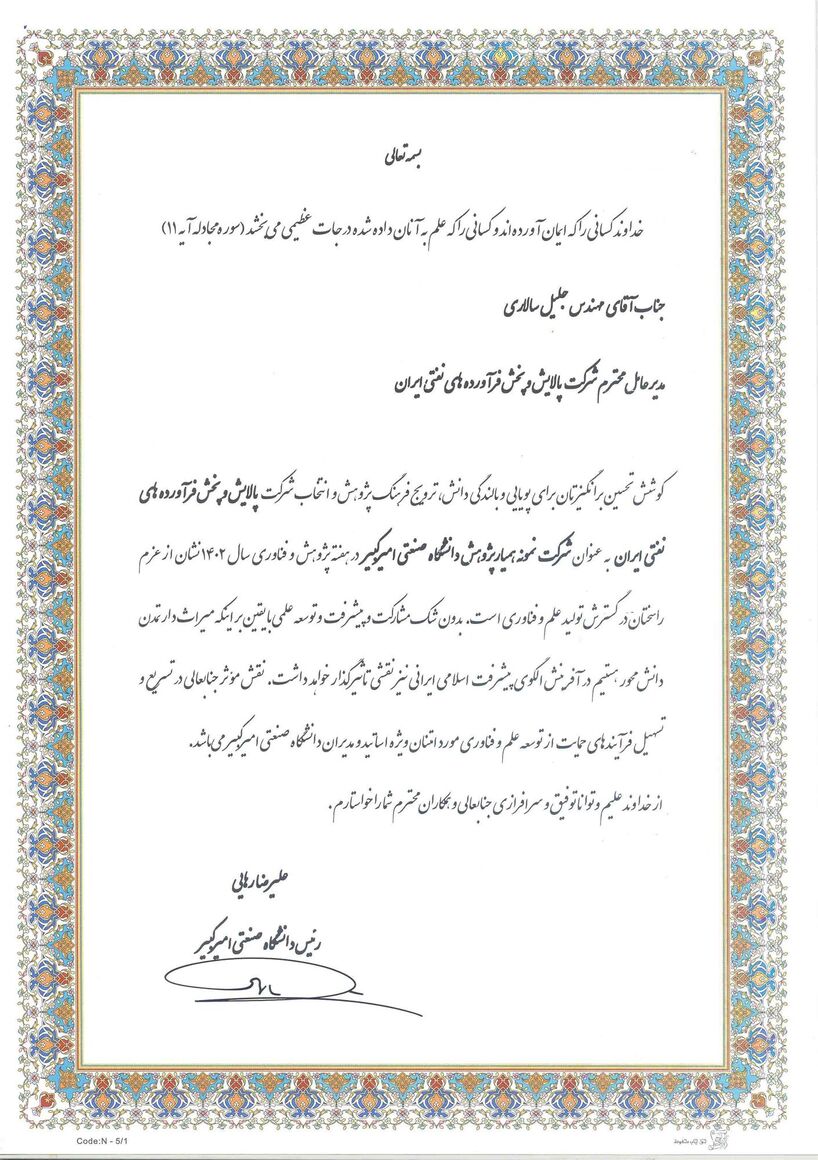 بسمه تعالی
خداوند کسانی را که ایمان آورده اند و کسانی را که علم به آنان داده شده درجات عظیمی می بخشد (سوره مجادله آیه ۱۱)
جناب آقای مهندس جلیل سالاری
مدیر عامل محترم شرکت پالایش و پخش فرآورده های نفتی ایران
کوشش تحسین برانگیزتان برای پویایی و بالندگی دانش، ترویج فرهنگ پژوهش و انتخاب شرکت پالایش و پخش فرآورده های
نفتی ایران به عنوان شرکت نمونه همیار پژوهش دانشگاه صنعتی امیرکبیر در هفته پژوهش و فناوری سال ۱۴۰۲ نشان از عزم
راسختان در گسترش تولید علم و فناوری است. بدون شک مشارکت و پیشرفت و توسعه علمی با یقین بر اینکه میراث دار تمدن
دانش محور هستیم در آفرینش الگوی پیشرفت اسلامی ایرانی نیز نقشی تاثیرگذار خواهد داشت. نقش مؤثر جنابعالی در تسریع و
تسهیل فرآیندهای حمایت از توسعه علم و فناوری مورد امتنان ویژه اساتید و مدیران دانشگاه صنعتی امیرکبیر می باشد.
از خداوند علیم و توانا توفیق و سرافرازی جنابعالی و همکاران محترم شما را خواستارم.
علیرضا رهایی
رئیس دانشگاه صنعتی امیرکبیر
Code:N - 5/1